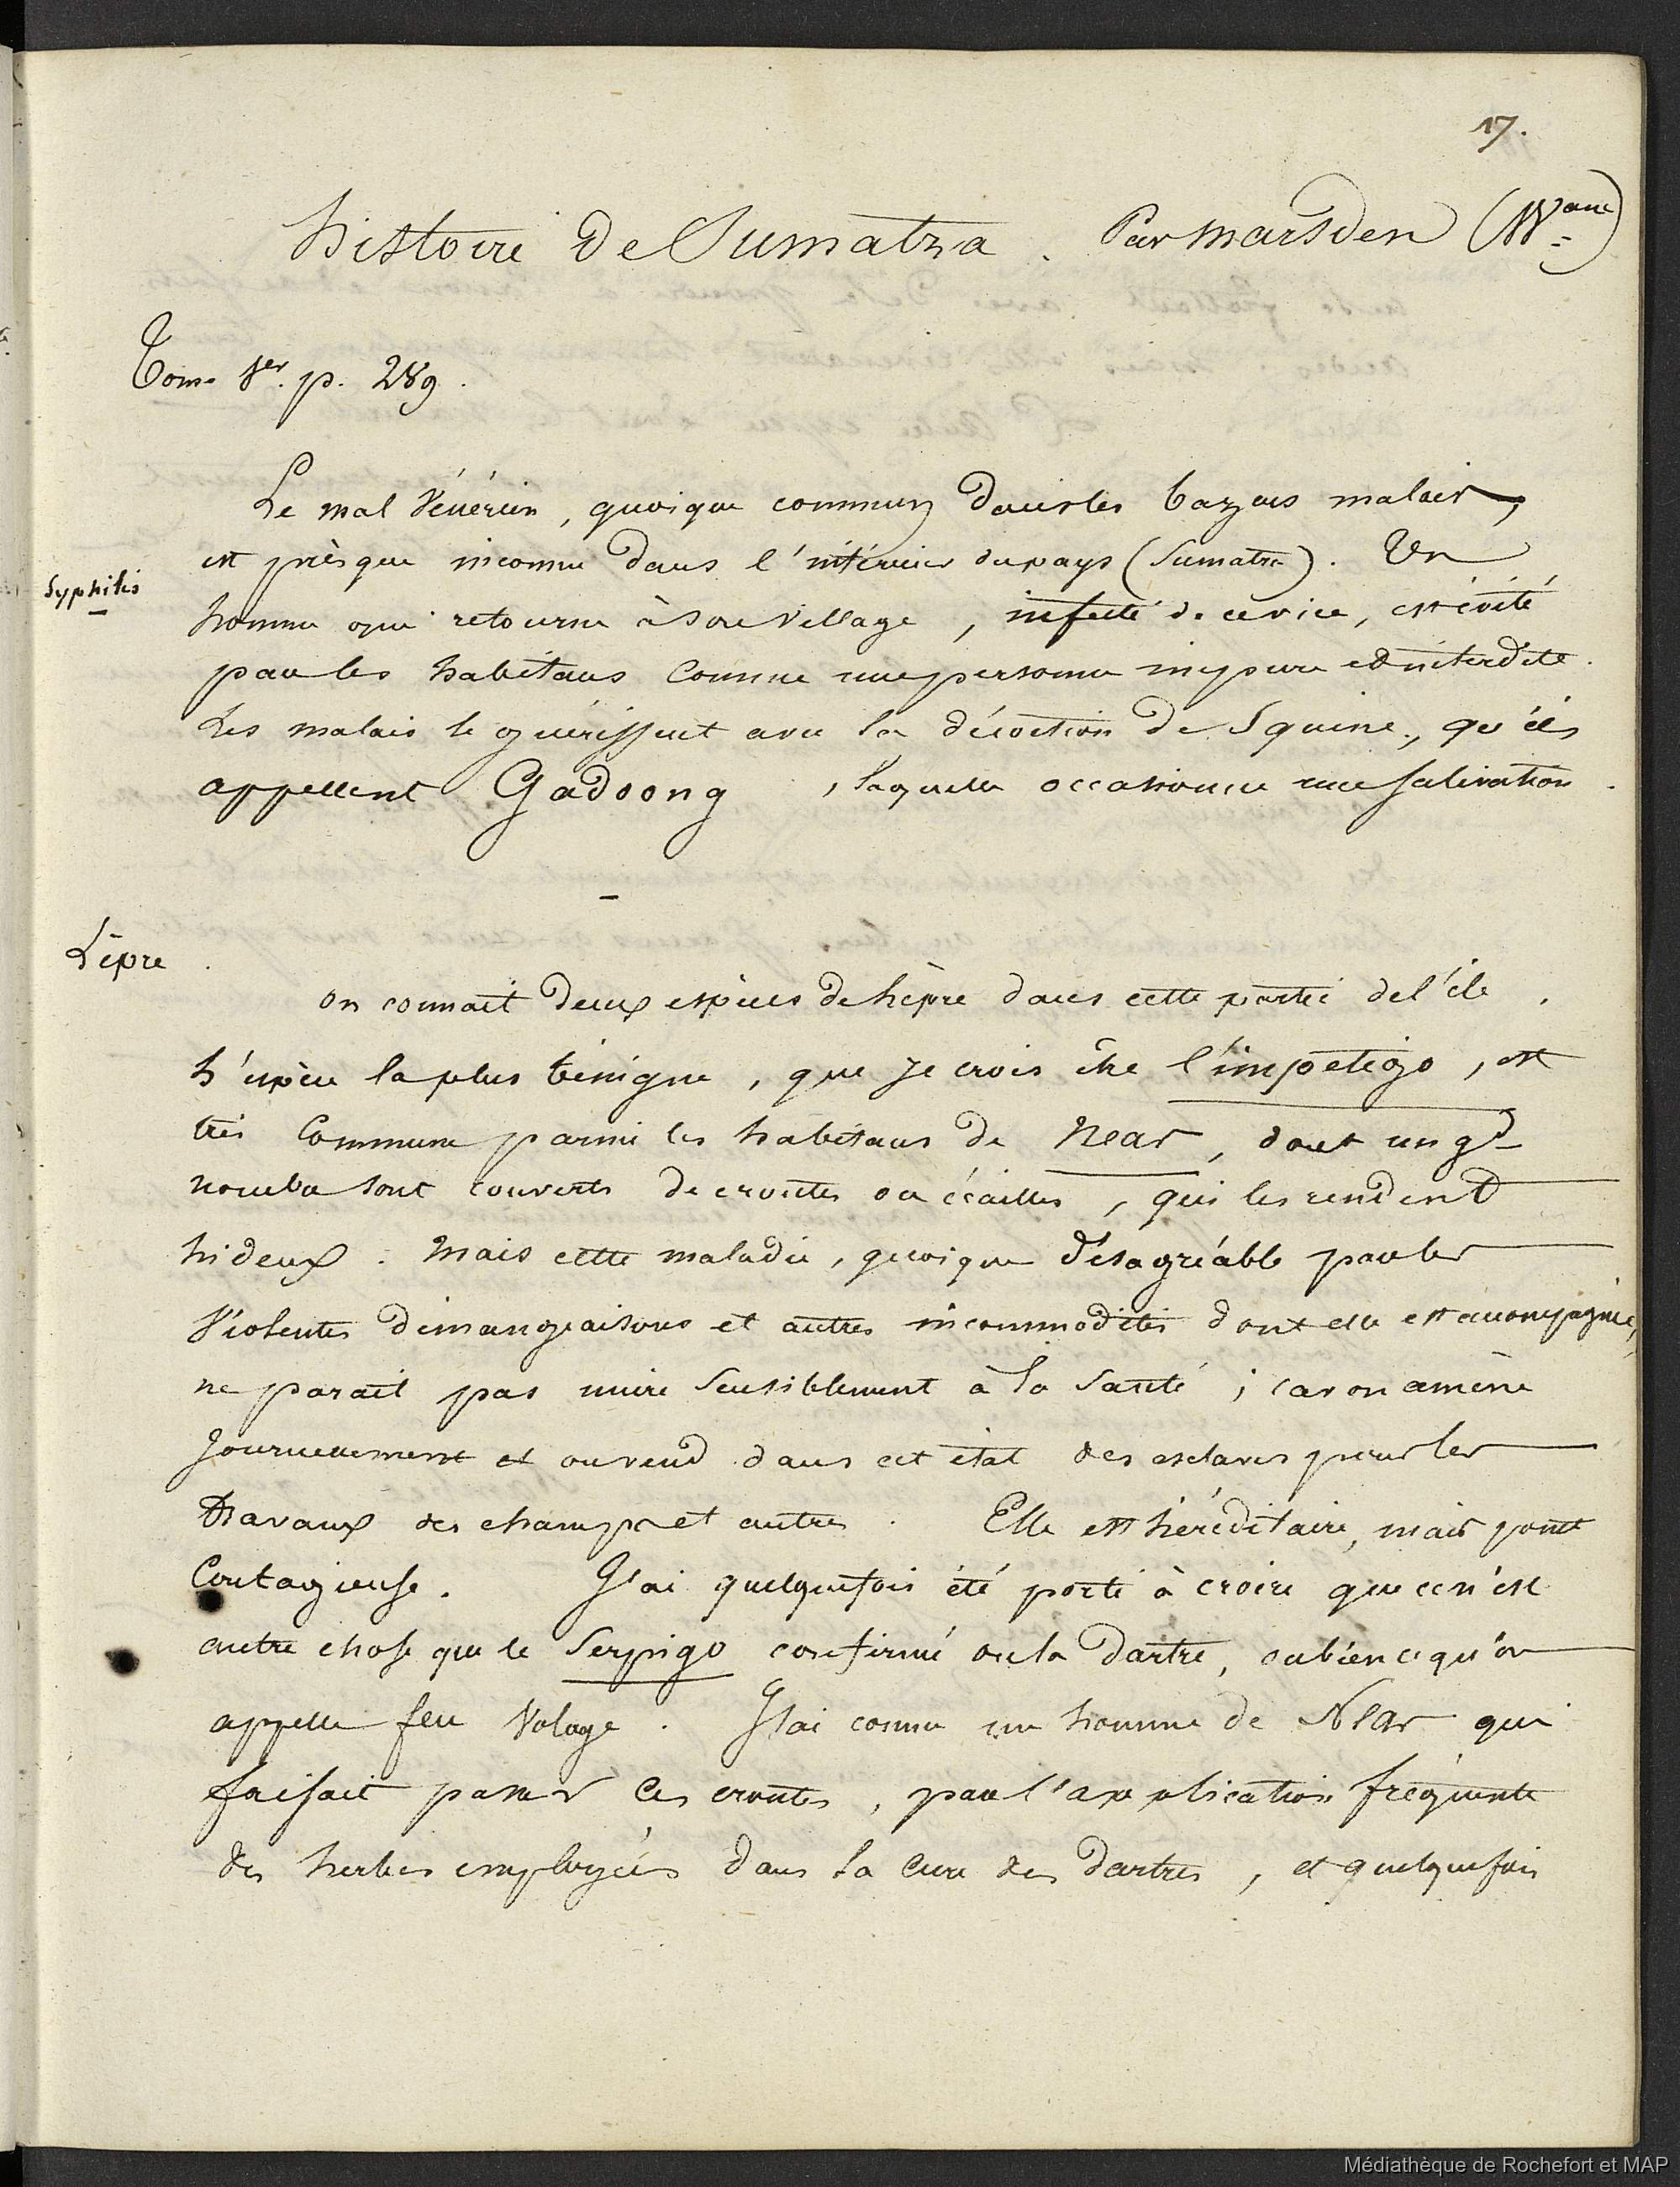 17.
histoire de Sumatra. Par marsden (W<sup>am</sup>)
Tom. 1<sup>er</sup>. p. 289.
Le mal vénérien, quoique commun dans les bazars malais,
est présque inconnu dans l'intérieur du pays (Sumatra). Un
Syphilis
homme qui retourne à son village, infecté de ce vice, est évité
par les habitans comme une personne impure et interdite.
Les malais le guérissent avec la décoction de Squine, qu'ils
appellent Gadoong, laquelle occasionne une salivation.
Lèpre.
on connait deux espèces de lèpre dans cette partie de l'île.
L'espèce la plus bénigne, que je crois être l'impetigo, est
très commune parmi les habitans de Near, dont un g<sup>d</sup>
nombre sont couverts de croutes ou écailles, qui les rendent
hideux. Mais cette maladie, quoique désagréable par les
violentes démangeaisons et autres incommodités dont elle est accompagnée,
ne parait pas nuire sensiblement à la santé; car on amène
journellement et on vend dans cet état des esclaves pour les
travaux des champs et autres. Elle est héréditaire, mais point
contagieuse. J'ai quelquefois été porté à croire que ce n'est
autre chose que le Serpigo confirmé ou la dartre, ou bien ce qu'on
appelle feu volage. J'ai connu un homme de Near qui
faisait passer ces croutes, par l'application fréquente
des herbes employées dans la cure des dartres, et quelquefois
Médiathèque de Rochefort et MAP